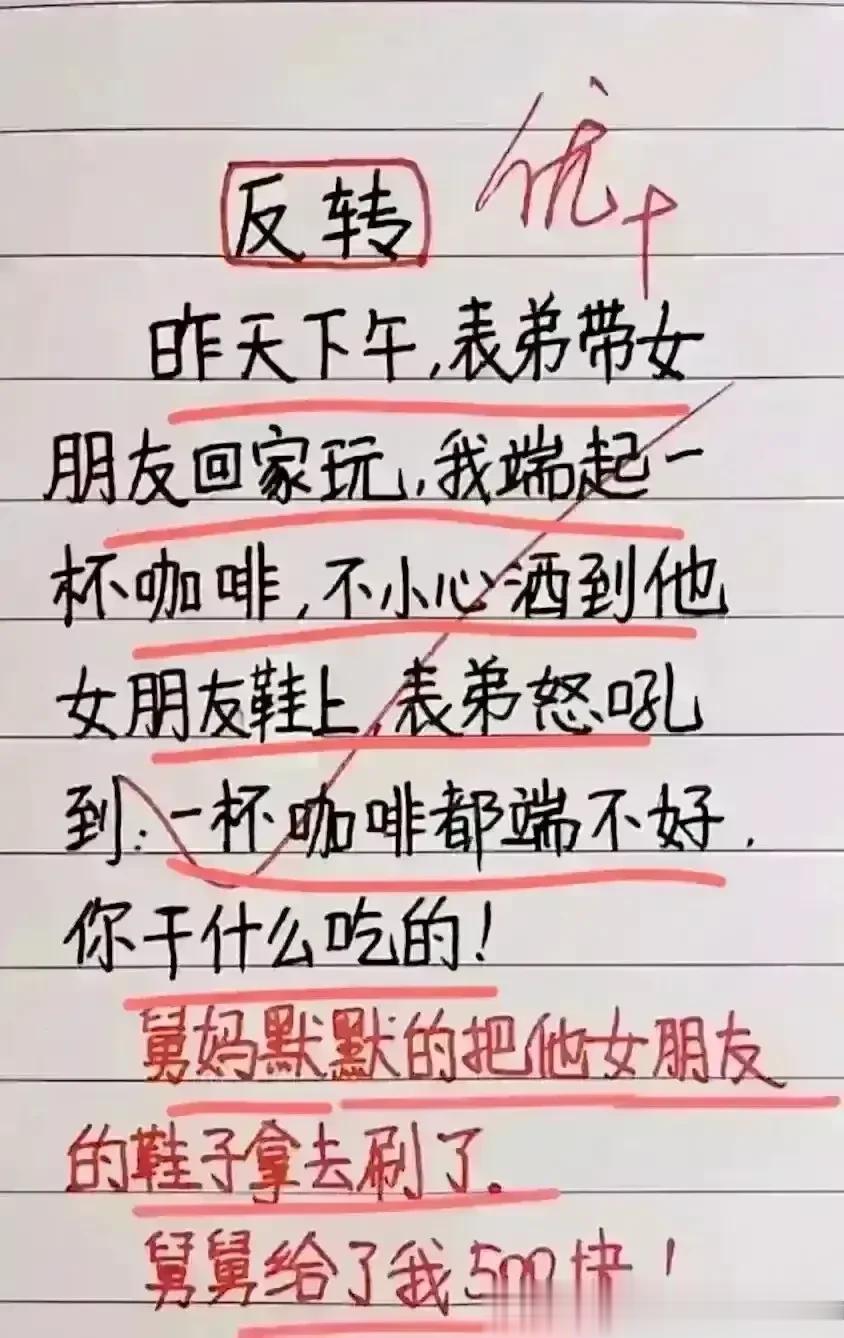 反转
优+
昨天下午,表弟带女
朋友回家玩,我端起一
杯咖啡,不小心洒到他
女朋友鞋上,表弟怒吼
到:一杯咖啡都端不好.
你干什么吃的!
舅妈默默的把他女朋友
的鞋子拿去刷了.
舅舅给了我500块!